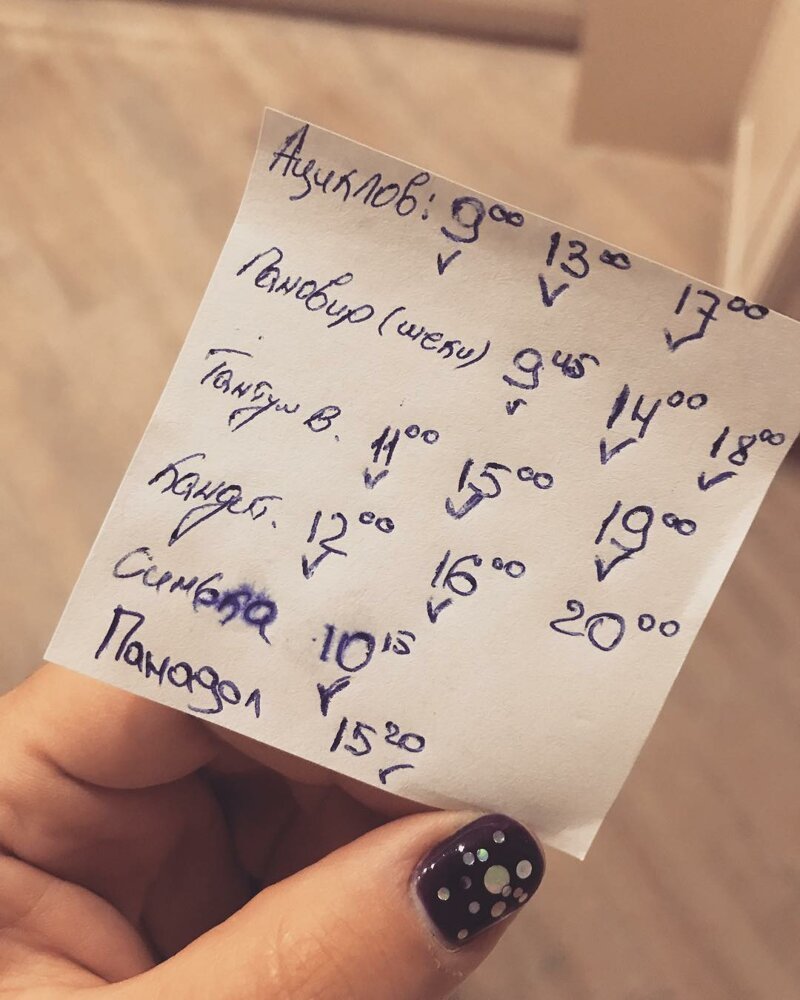 Ациклов: 9⁰⁰ 13⁰⁰ 17⁰⁰
Пановир (шеки) 9⁴⁵ 14⁰⁰ 18⁰⁰
Тантум В. 11⁰⁰ 15⁰⁰ 19⁰⁰
Кандит. 12⁰⁰ 16⁰⁰ 20⁰⁰
Синька 10¹⁵
Панадол 15²⁰